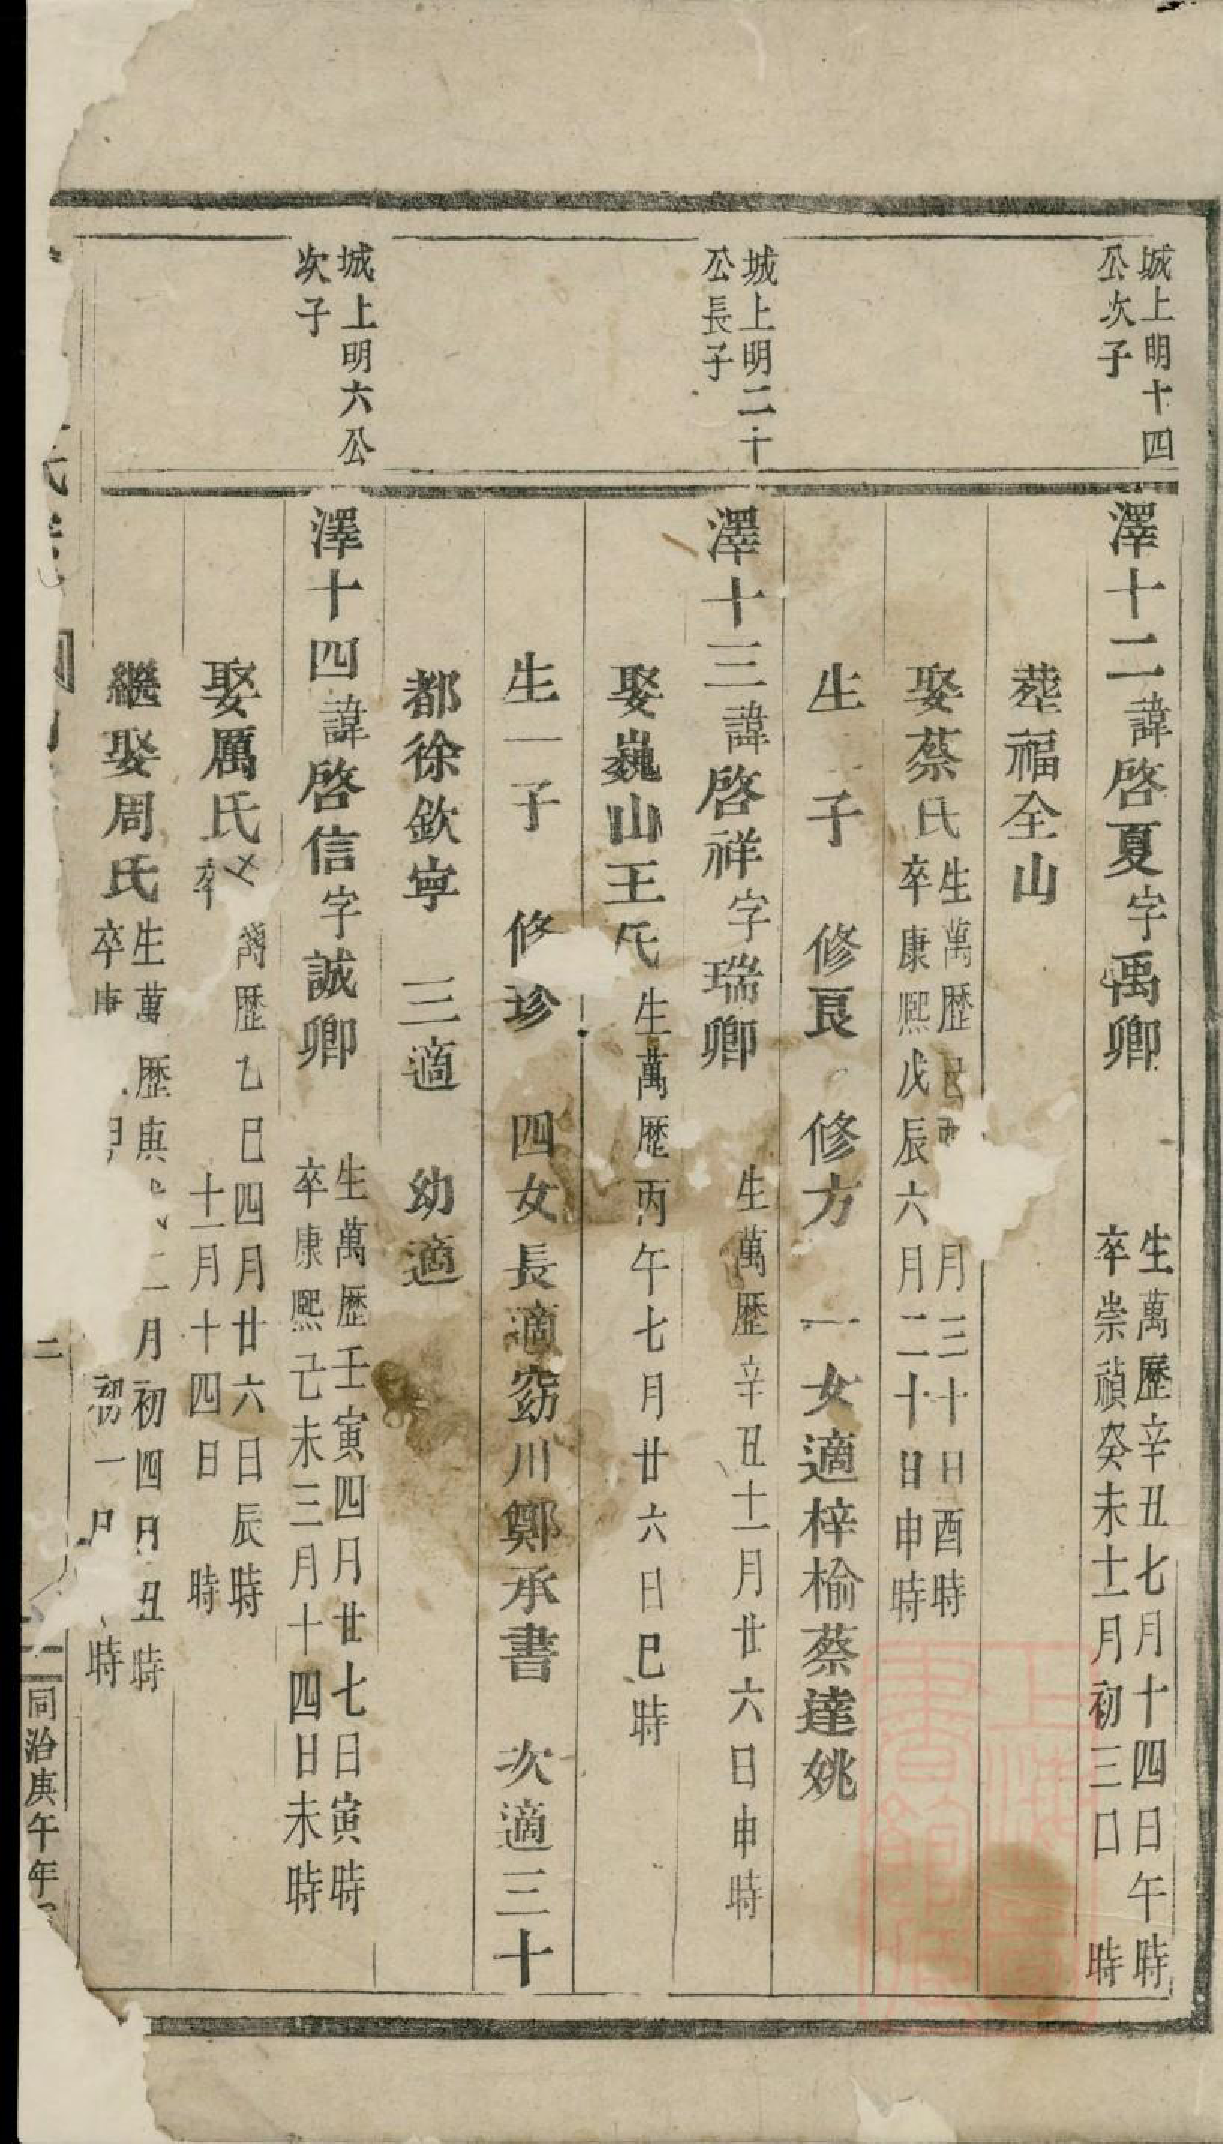 城上明十四
公次子
澤十二諱啓夏字禹卿
生萬歷辛丑七月十四日午時
卒崇禎癸未十一月初三日 時
葬福全山
娶蔡氏
生萬歷 月三十日酉時
卒康熙戊辰六月二十日申時
生 子 修良 修方 一女適梓榆蔡達姚
城上明二十
公長子
澤十三諱啓祥字瑞卿
生萬歷辛丑十一月廿六日申時
娶巍山王氏
生萬歷丙午七月廿六日巳時
生一子 修珍 四女長適窈川鄭承書 次適三十
都徐欽寧 三適 幼適
城上明六公
次子
澤十四諱啓信字誠卿
生萬歷壬寅四月廿七日寅時
卒康熙己未三月十四日未時
娶厲氏
萬歷乙巳四月廿六日辰時
卒 十一月十四日 時
繼娶周氏
生萬歷庚 二月初四日丑時
卒康 初一日 時
二
同治庚午年